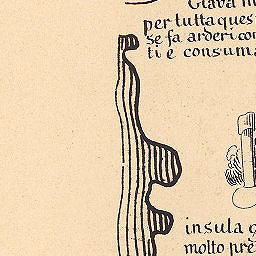 Giava
per tutta ques
se fa arder i cor
ti e consuma
insula
molto pre